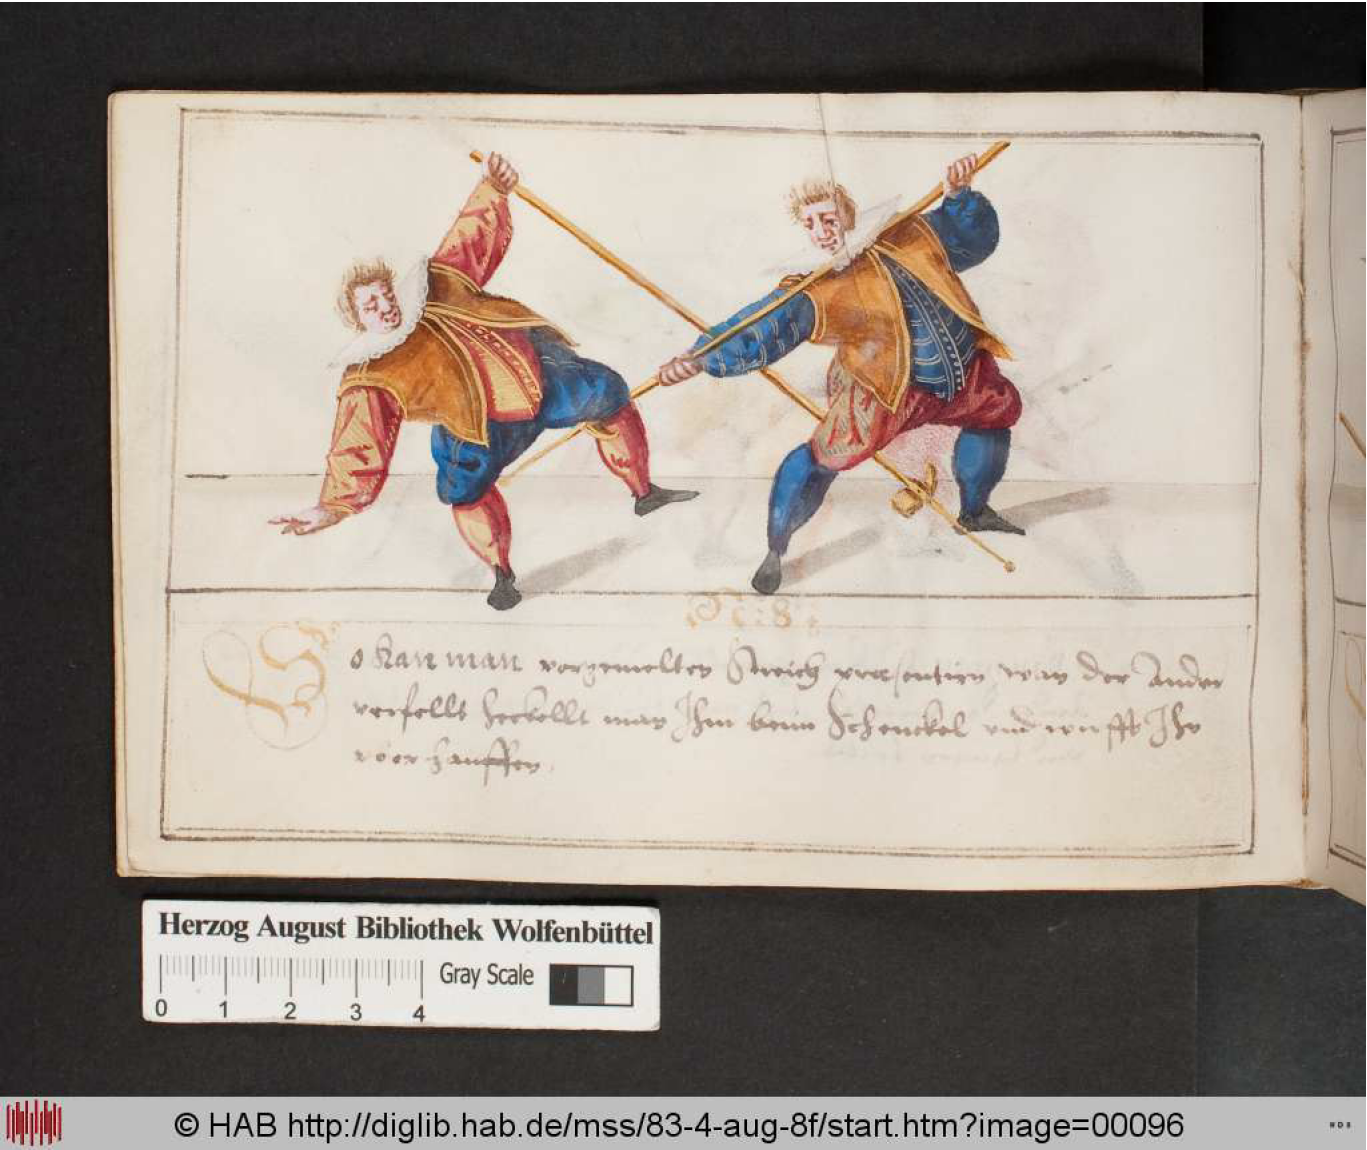 N: 8:
So kan man vorgemelten Streich præsentirn wan der Ander
verfellt heckellt man Ihm beim Schenckel und wirfft Ihn
vber hauffen.
Herzog August Bibliothek Wolfenbüttel
Gray Scale
0 1 2 3 4
© HAB http://diglib.hab.de/mss/83-4-aug-8f/start.htm?image=00096